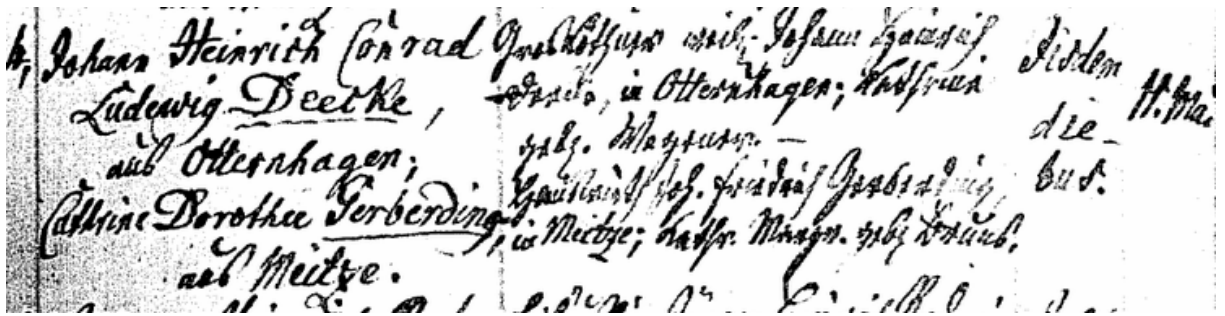 4, Johann Heinrich Conrad
Ludewig Deecke,
aus Otternhagen;
Cathrine Dorothee Gerberding,
aus Meitze.
Grosköthner weil. Johann Heinrich
Deeke, in Otternhagen; Cathrine
gebz. Wegener. —
Hauswirth Joh. Friedrich Gerberding,
in Meitze; Cathr. Margr. gebz
Iisdem
die-
bus.
11. Mai